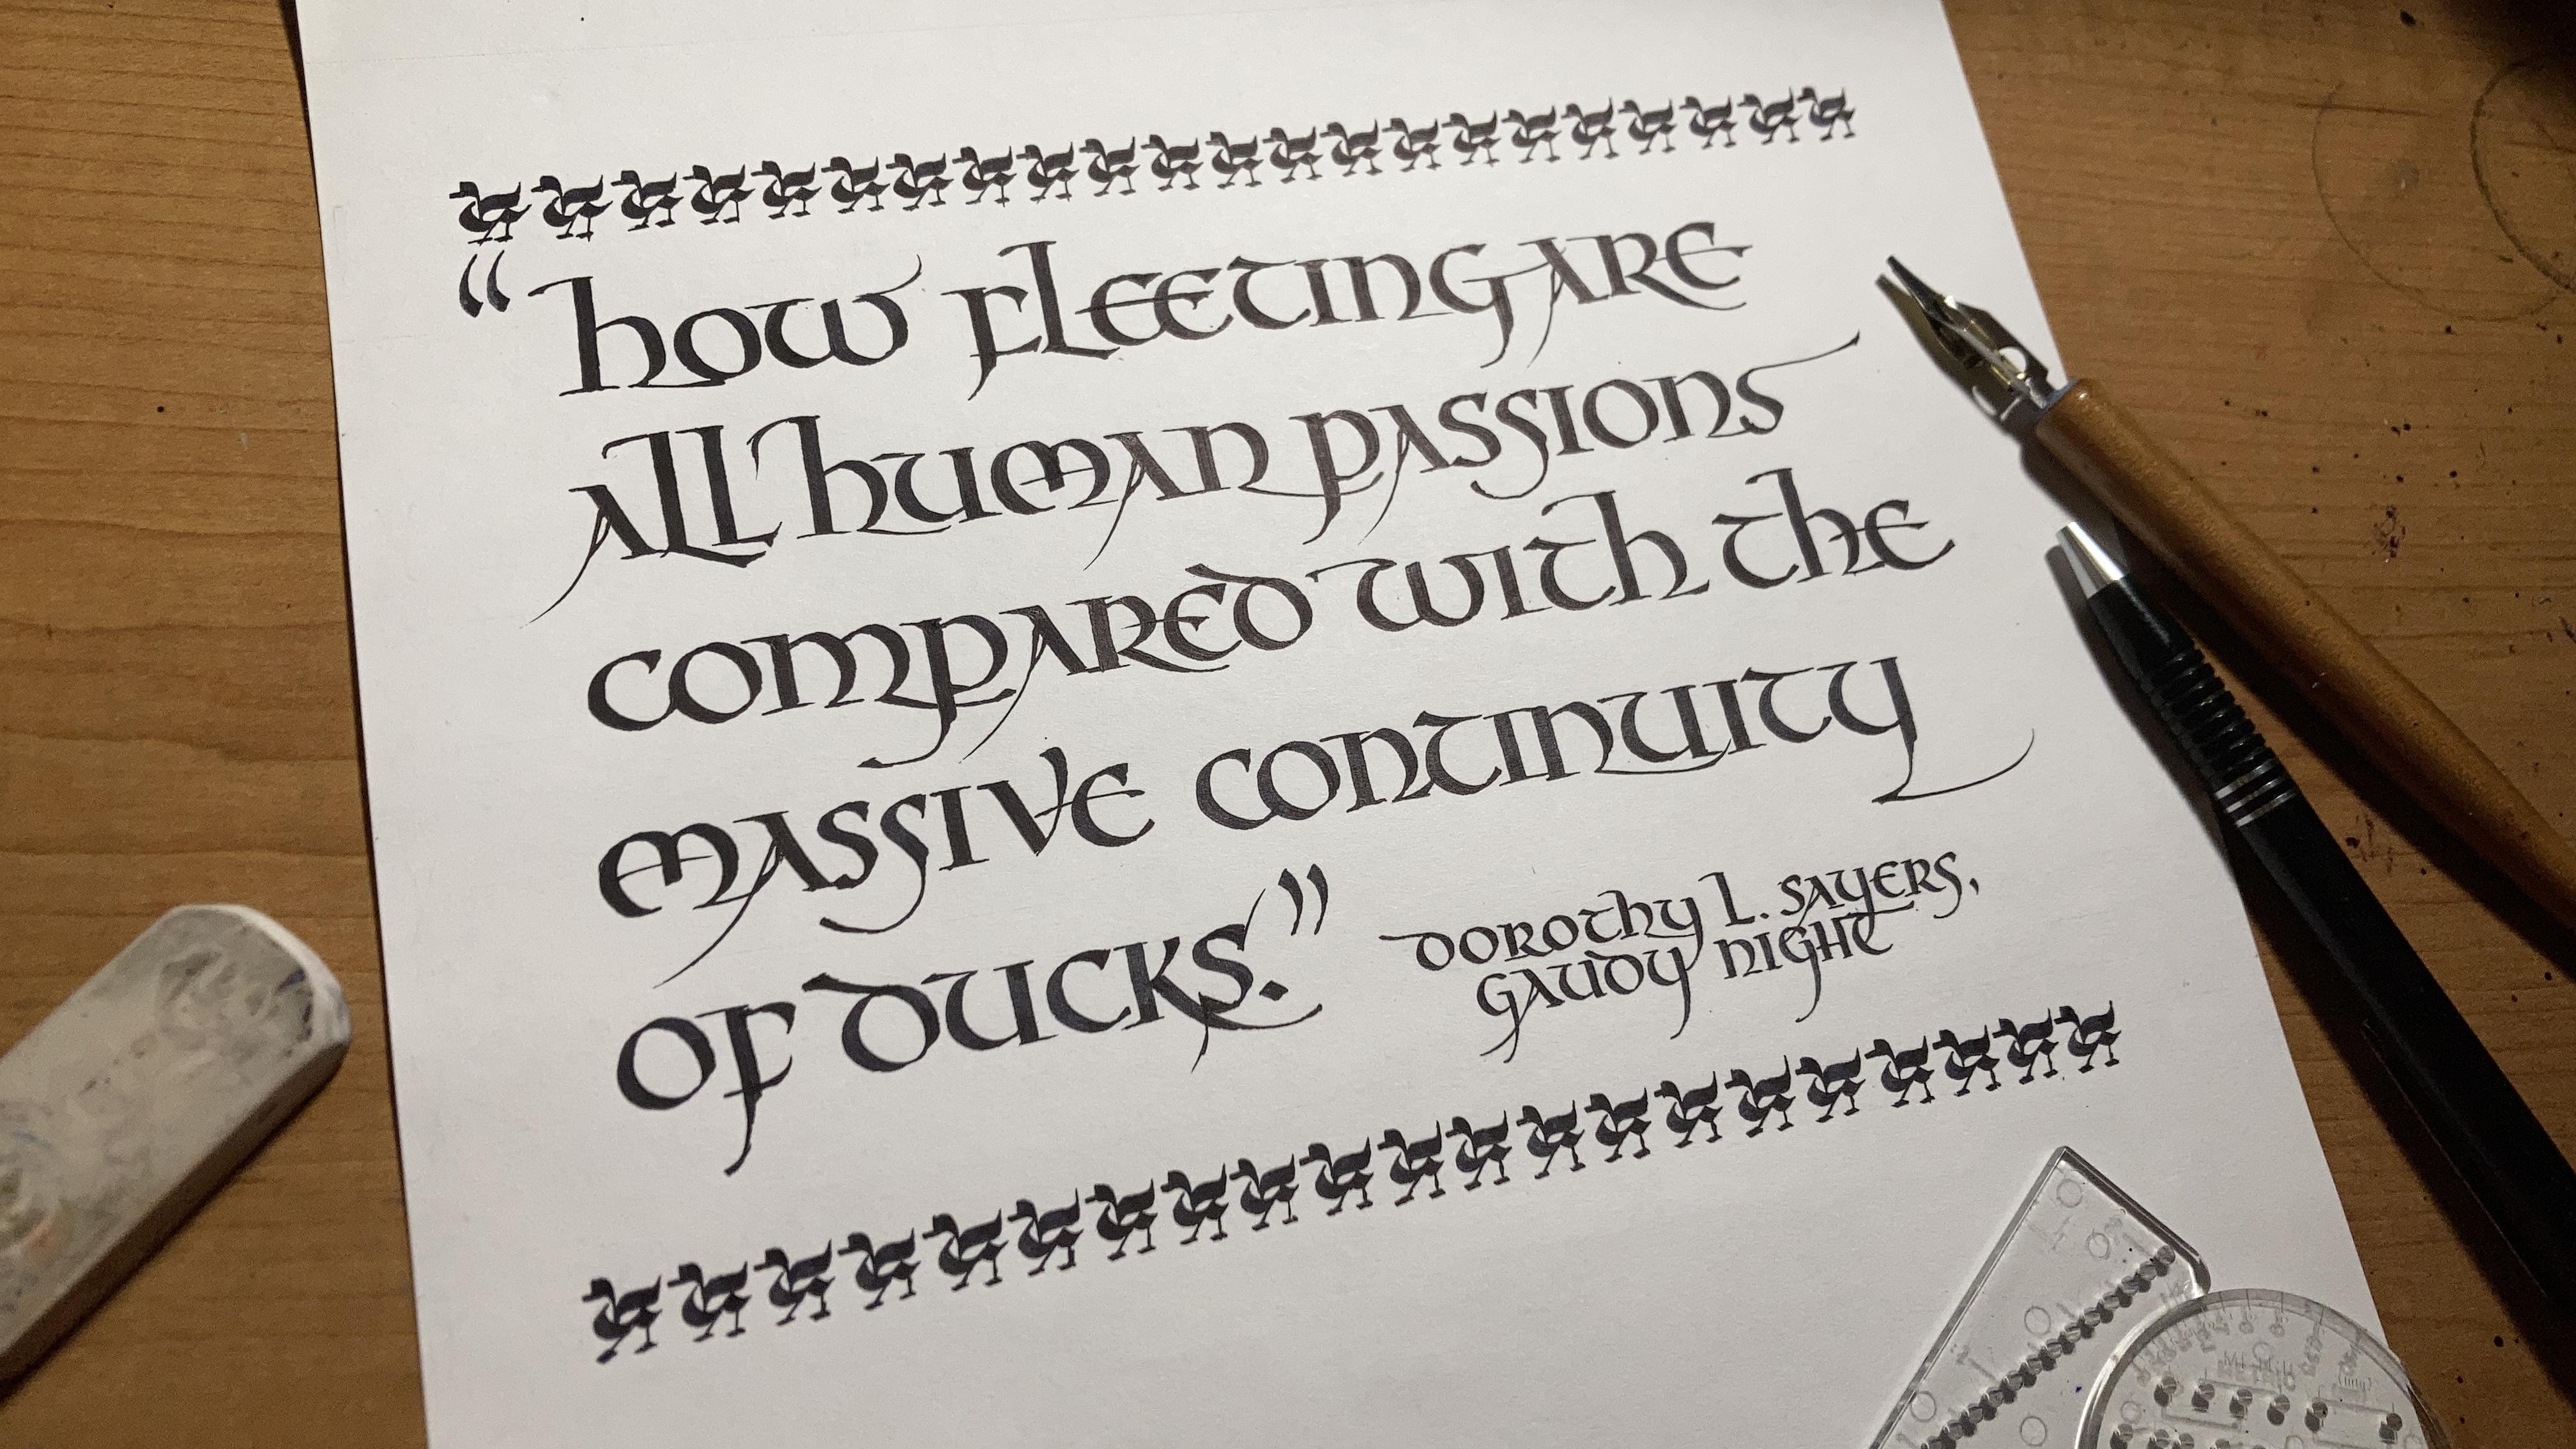 “how fleeting are
all human passions
compared with the
massive continuity
of ducks.”
Dorothy L. Sayers,
Gaudy Night